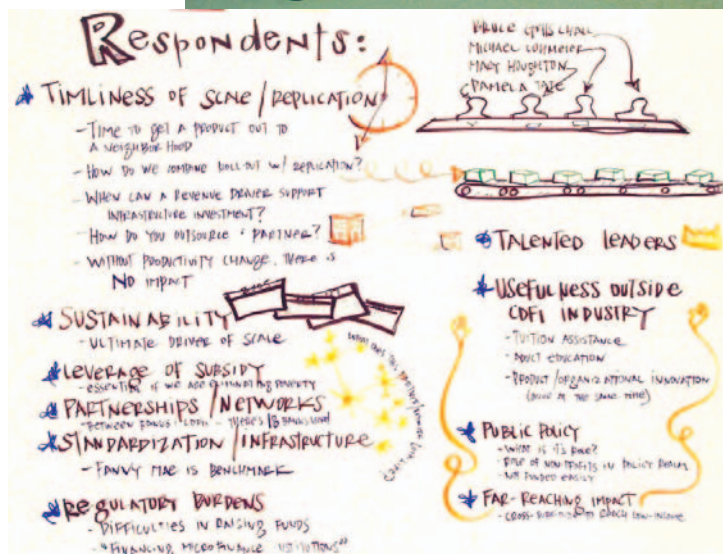 RESPONDENTS:
BRUCE
MICHAEL LOHMEIER
MARY HOUGHTON
PAMELA TATE
TIMLINESS OF SCALE/REPLICATION
- TIME TO GET A PRODUCT OUT TO
A NEIGHBORHOOD
- HOW DO WE COMBINE ROLL-OUT W/ REPLICATION?
- WHEN CAN A REVENUE DRIVER SUPPORT
INFRASTRUCTURE INVESTMENT?
- HOW DO YOU OUTSOURCE + PARTNER?
- WITHOUT PRODUCTIVITY CHANGE, THERE IS
NO IMPACT
SUSTAINABILITY
- ULTIMATE DRIVER OF SCALE
LEVERAGE OF SUBSIDY
- ESSENTIAL IF WE ARE ELIMINATING POVERTY
PARTNERSHIPS/NETWORKS
- BETWEEN BANKS + CDFIs - THERE'S
STANDARDIZATION/INFRASTRUCTURE
- FANNY MAE IS BENCHMARK
REGULATORY BURDENS
- DIFFICULTIES IN RAISING FUNDS
- "FINANCING MICROFINANCE INSTITUTIONS"
TALENTED LEADERS
USEFULNESS OUTSIDE
CDFI INDUSTRY
- TUITION ASSISTANCE
- ADULT EDUCATION
- PRODUCT/ORGANIZATIONAL INNOVATION
(DONE AT THE SAME TIME)
PUBLIC POLICY
- WHAT IS ITS ROLE?
- ROLE OF NON PROFITS IN POLICY REALM
- NOT FUNDED EASILY
FAR-REACHING IMPACT
- CROSS-SUBSIDIZE TO REACH LOW-INCOME